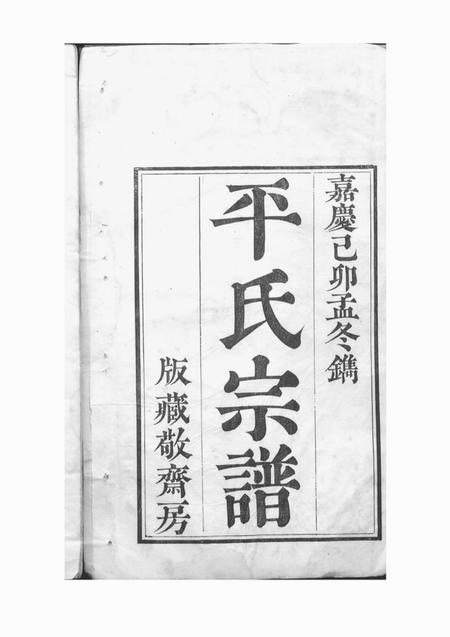 嘉慶己卯孟冬鐫
平氏宗譜
版藏敬齋房